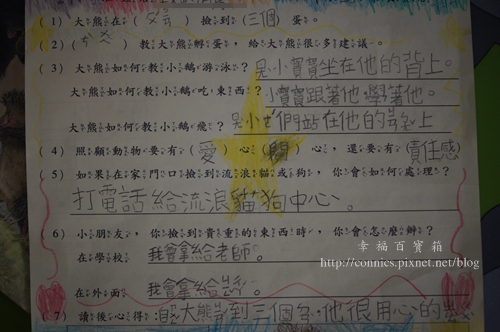 (1) 大熊在( )撿到(三個)蛋。
(2) ( )教大熊孵蛋，給大熊很多建議。
(3) 大熊如何教小鵝游泳？ 小寶寶坐在他的背上。
大熊如何教小鵝吃東西？小寶寶跟著他學著他。
大熊如何教小鵝飛？ 們站在他的 上
(4) 照顧動物要有(愛)心( )心，還要有責任感
(5) 如果在家門口撿到流浪貓或狗，你會如何處理？
打電話給流浪貓狗中心。
(6) 小朋友，你撿到貴重的東西時，你會怎麼辦？
在學校 我會拿給老師。
幸福百寶箱
http://connics.pixnet.net/blog
在外面 我會拿給
(7) 讀後心得： 大熊 到三個 他很用心的